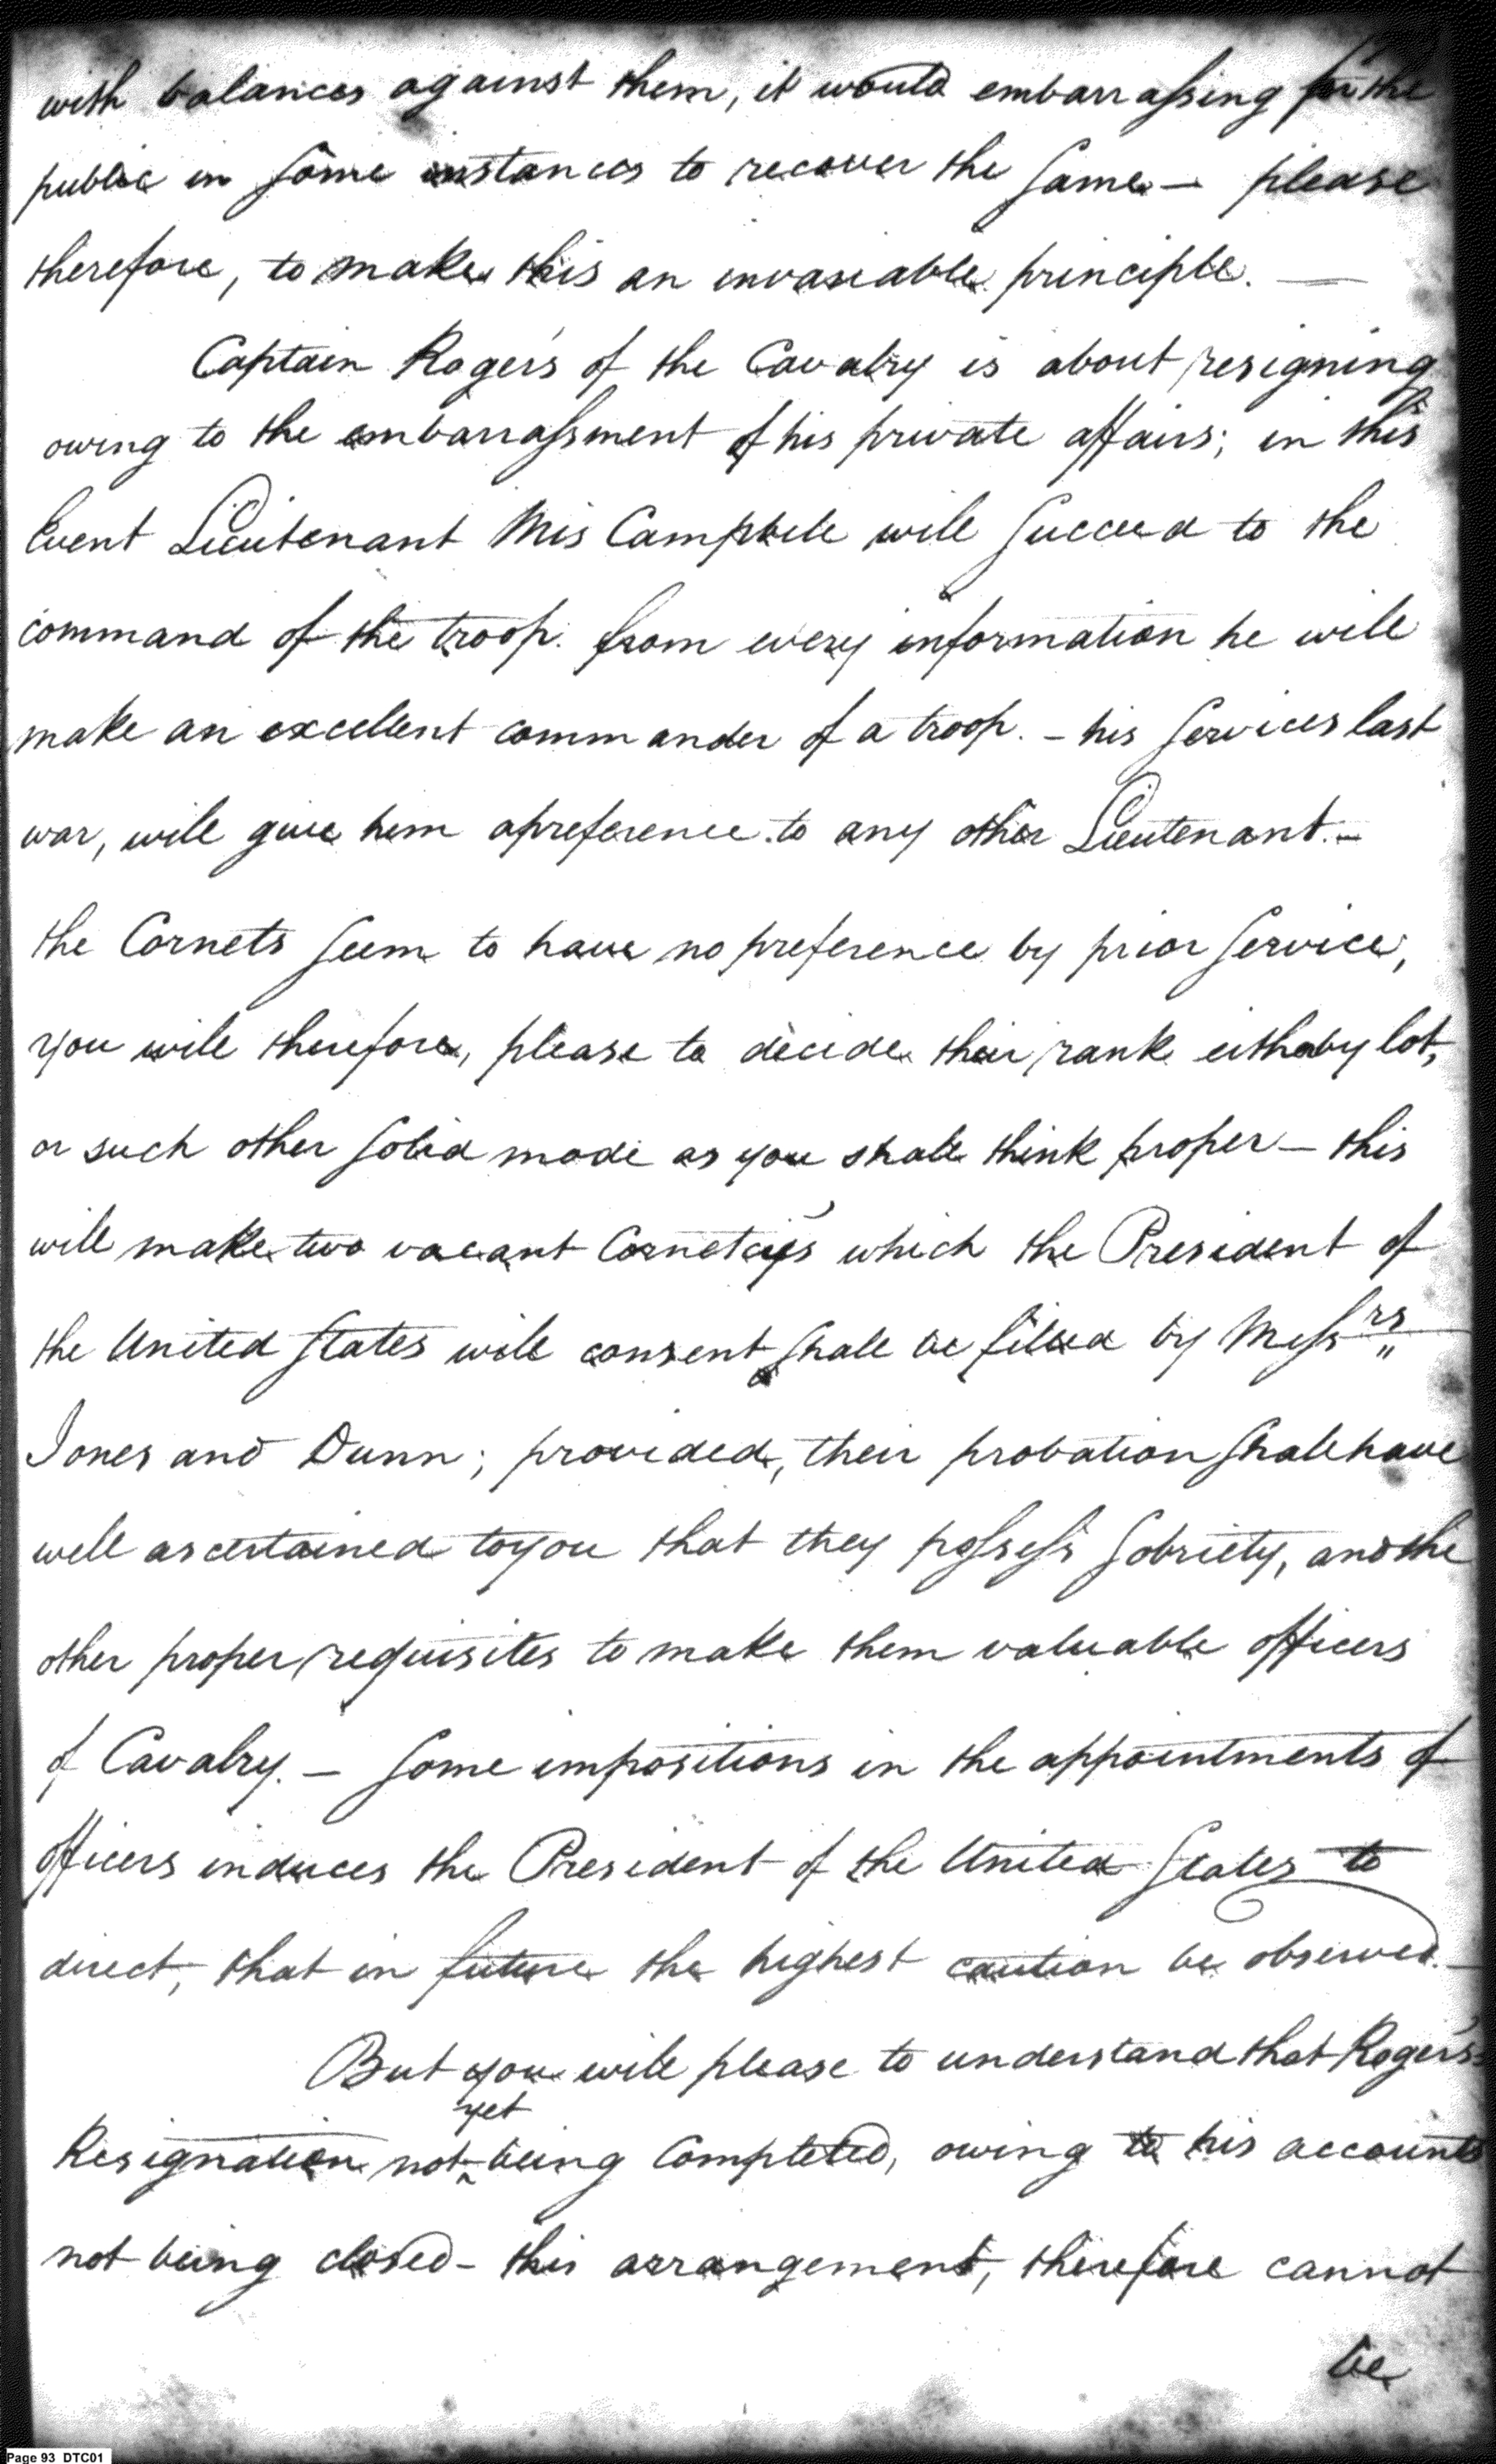 with balances against them, it would embarrassing for the
public in some instances to recover the same — please
therefore, to make this an invariable principle. —
Captain Roger's of the Cavalry is about resigning
owing to the embarrassment of his private affairs; in this
Event Lieutenant Mis Campbell will succeed to the
command of the troop. from every information he will
make an excellent commander of a troop. – his services last
war, will give him a preference to any other Lieutenant. –
the Cornets seem to have no preference by prior service,
you will therefore, please to decide their rank either by lot,
or such other solid mode as you shall think proper – this
will make two vacant Cornetcy's which the President of
the United States will consent shall be filled by Messrs
Jones and Dunn; provided, their probation shall have
well ascertained to you that they possess sobriety, and the
other proper requisites to make them valuable officers
of Cavalry. – some impositions in the appointments of
officers induces the President of the United States to
direct, that in future the highest caution be observed. –
But you will please to understand that Roger's
yet
Resignation not ‸ being Completed, owing to his accounts
not being closed – this arrangement, therefore cannot
be
Page 93 DTC01